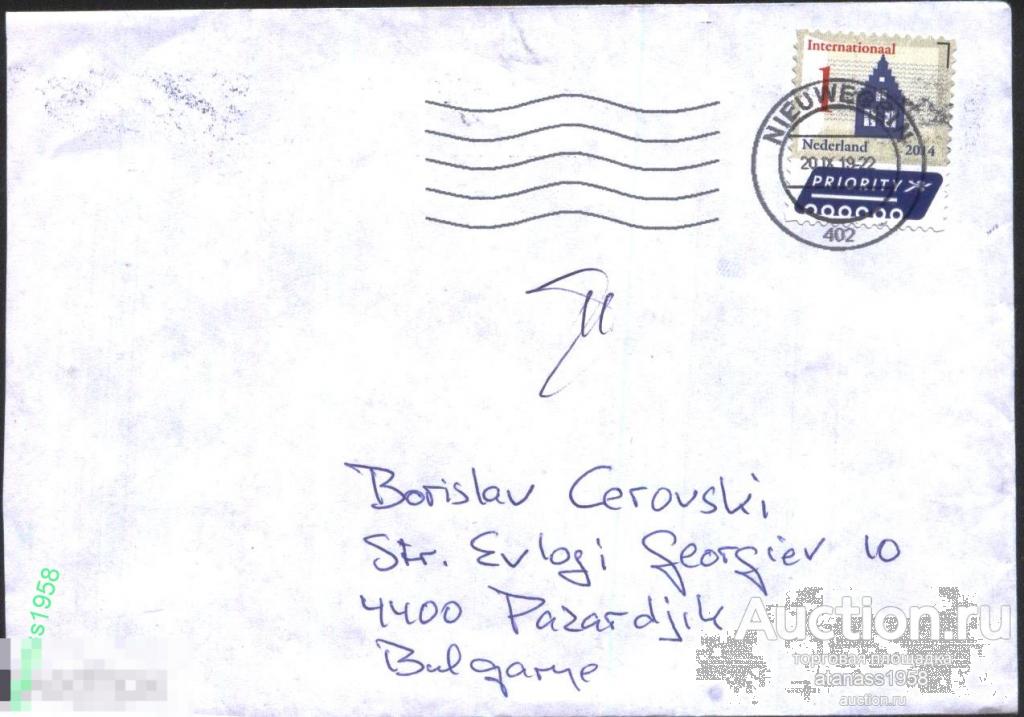 Internationaal
1
NIEUWEGEIN
Nederland
2014
20.IX.19-22
PRIORITY
402
Borislav Cerovski
Str. Evlogi Georgiev 10
4400 Pazardjik
Bulgarye
s1958
Auction.ru
торговая площадка
atanass1958
auction.ru